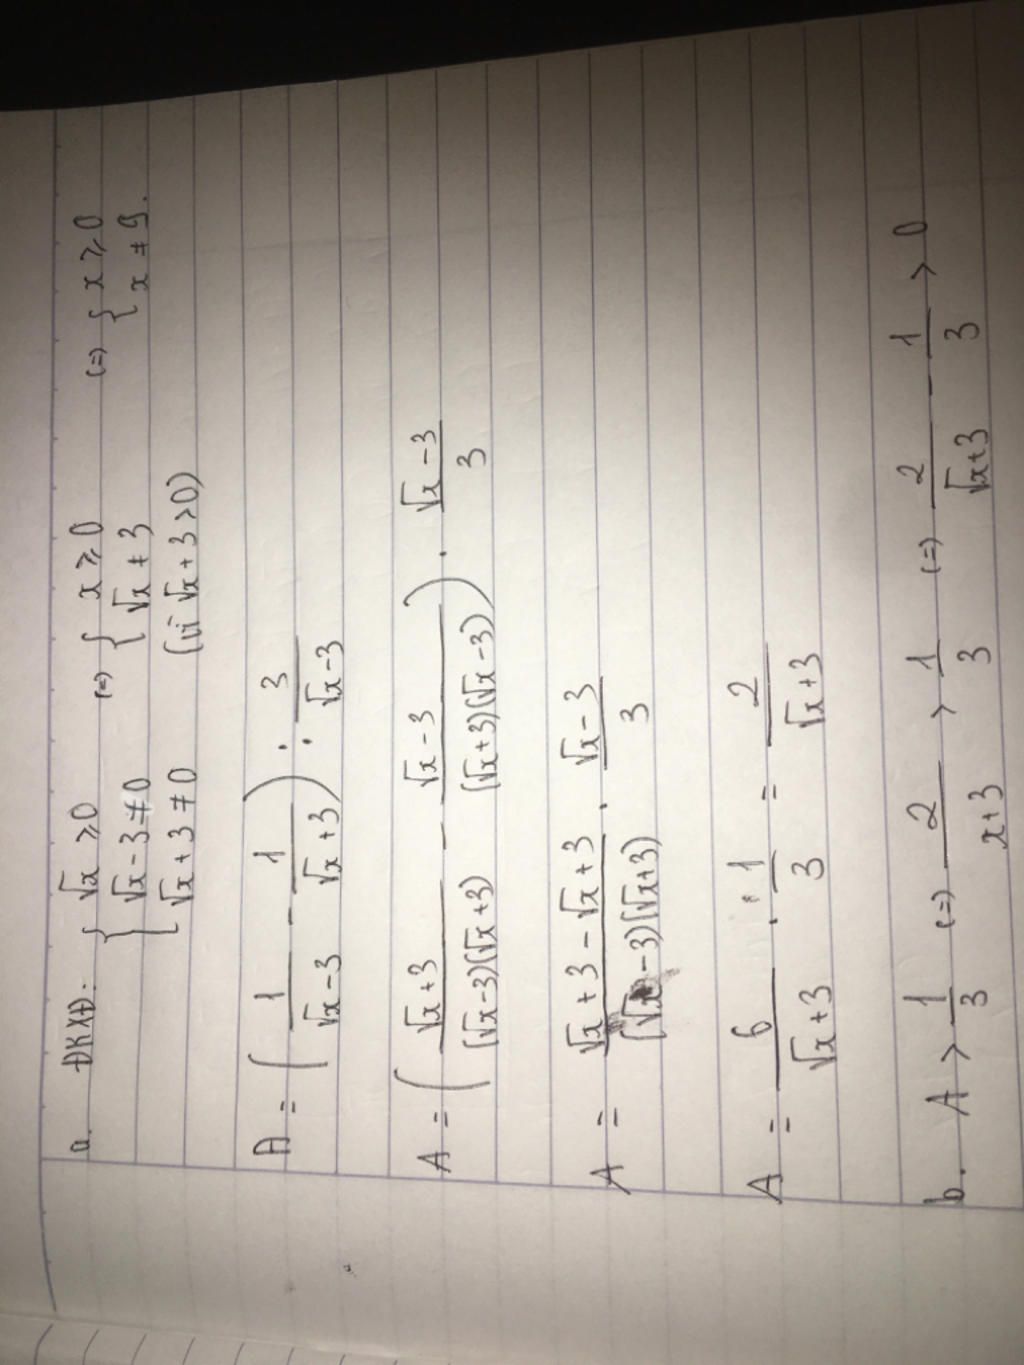 a. ĐKXĐ: { √x ≥ 0 (=) { x ≥ 0 (=) { x ≥ 0
√x - 3 ≠ 0 √x ≠ 3 x ≠ 9.
√x + 3 ≠ 0 (vì √x + 3 > 0)
A = ( 1/(√x - 3) - 1/(√x + 3) ) : 3/(√x - 3)
A = ( (√x + 3)/((√x - 3)(√x + 3)) - (√x - 3)/((√x + 3)(√x - 3)) ) . (√x - 3)/3
A = (√x + 3 - √x + 3)/((√x - 3)(√x + 3)) . (√x - 3)/3
A = 6/(√x + 3) . 1/3 = 2/(√x + 3)
b. A > 1/3 (=) 2/(x + 3) > 1/3 (=) 2/(√x + 3) - 1/3 > 0